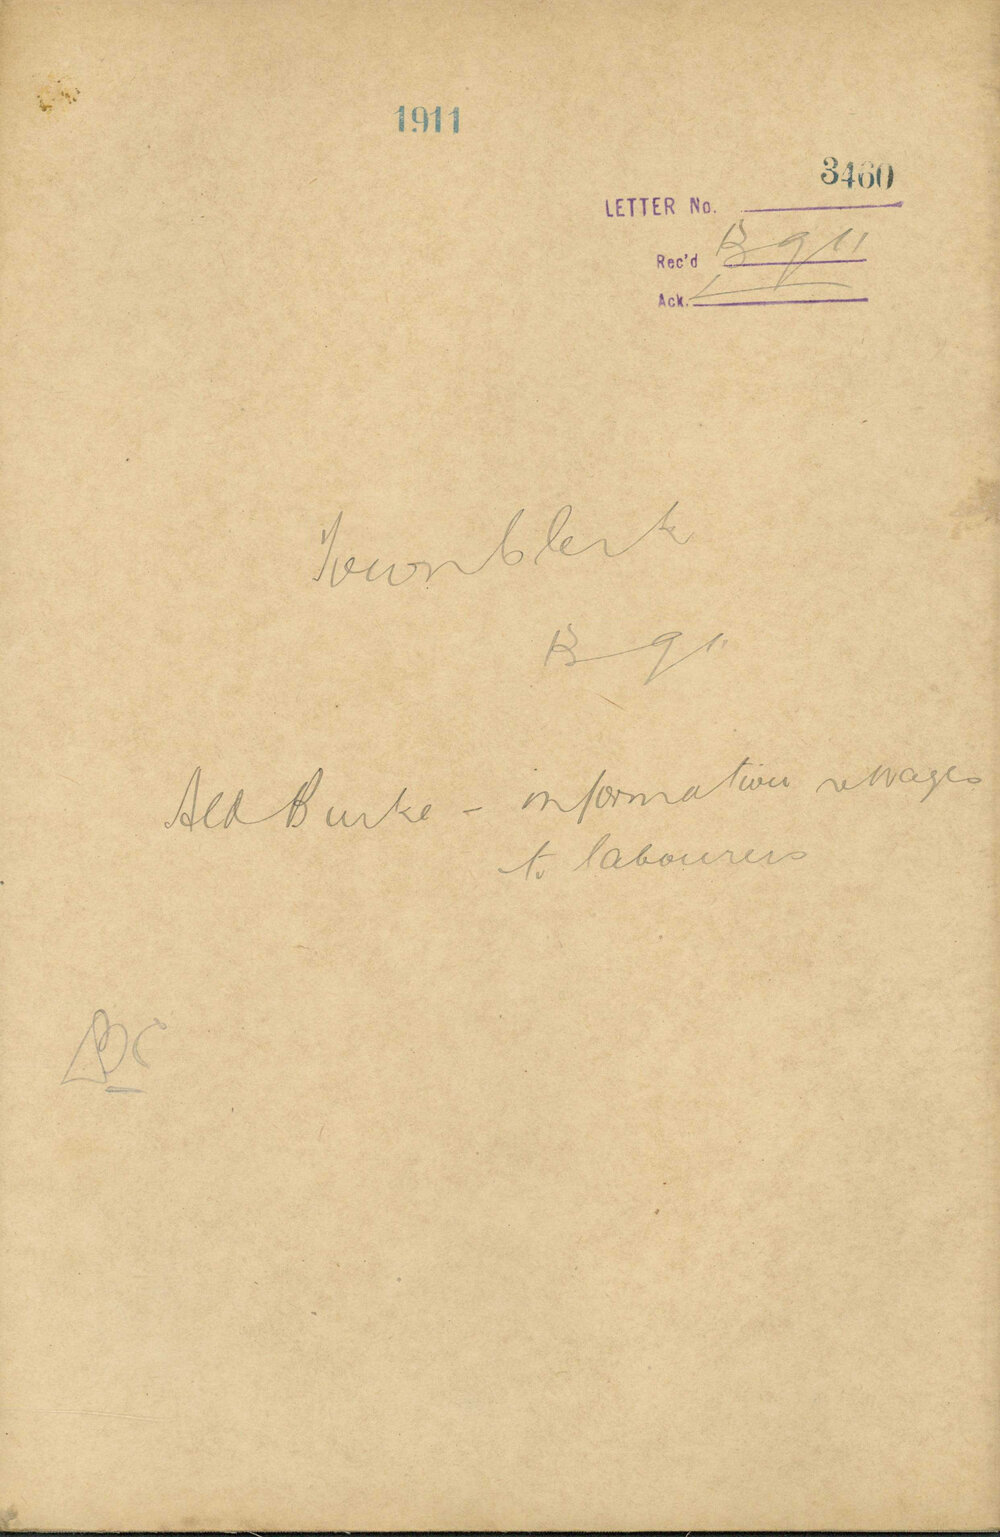 1911
3460
LETTER No.
Rec'd 13 9 11
Ack.
Town Clerk
13 9 11
Ald Burke - information re wages
to labourers